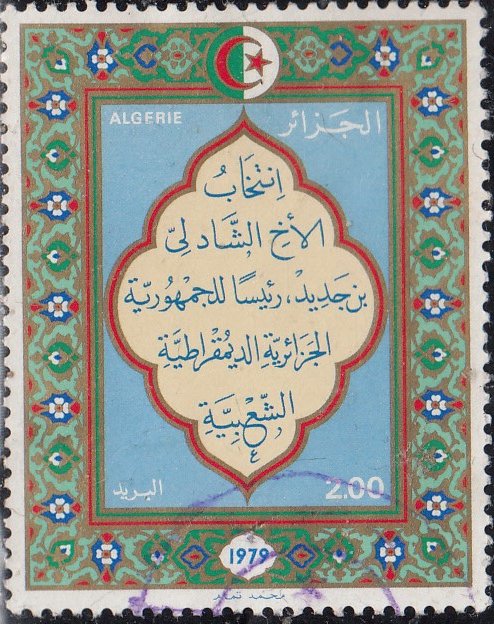 ALGERIE الجزائر
إنتخابُ
الأخ الشّاذليّ
بن جَديد، رئيسًا للجمهُوريّة
الجزائريّة الديمُقراطيّة
الشّعبيَّةِ
البريد 2.00
1979
محمد تمام